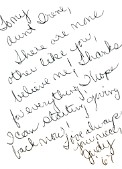 Tommy
Aunt Irene,
There are none
other like you,
believe me! Thanks
for everything. I hope
I can start giving
back now!
Love always
your niece,
Judy